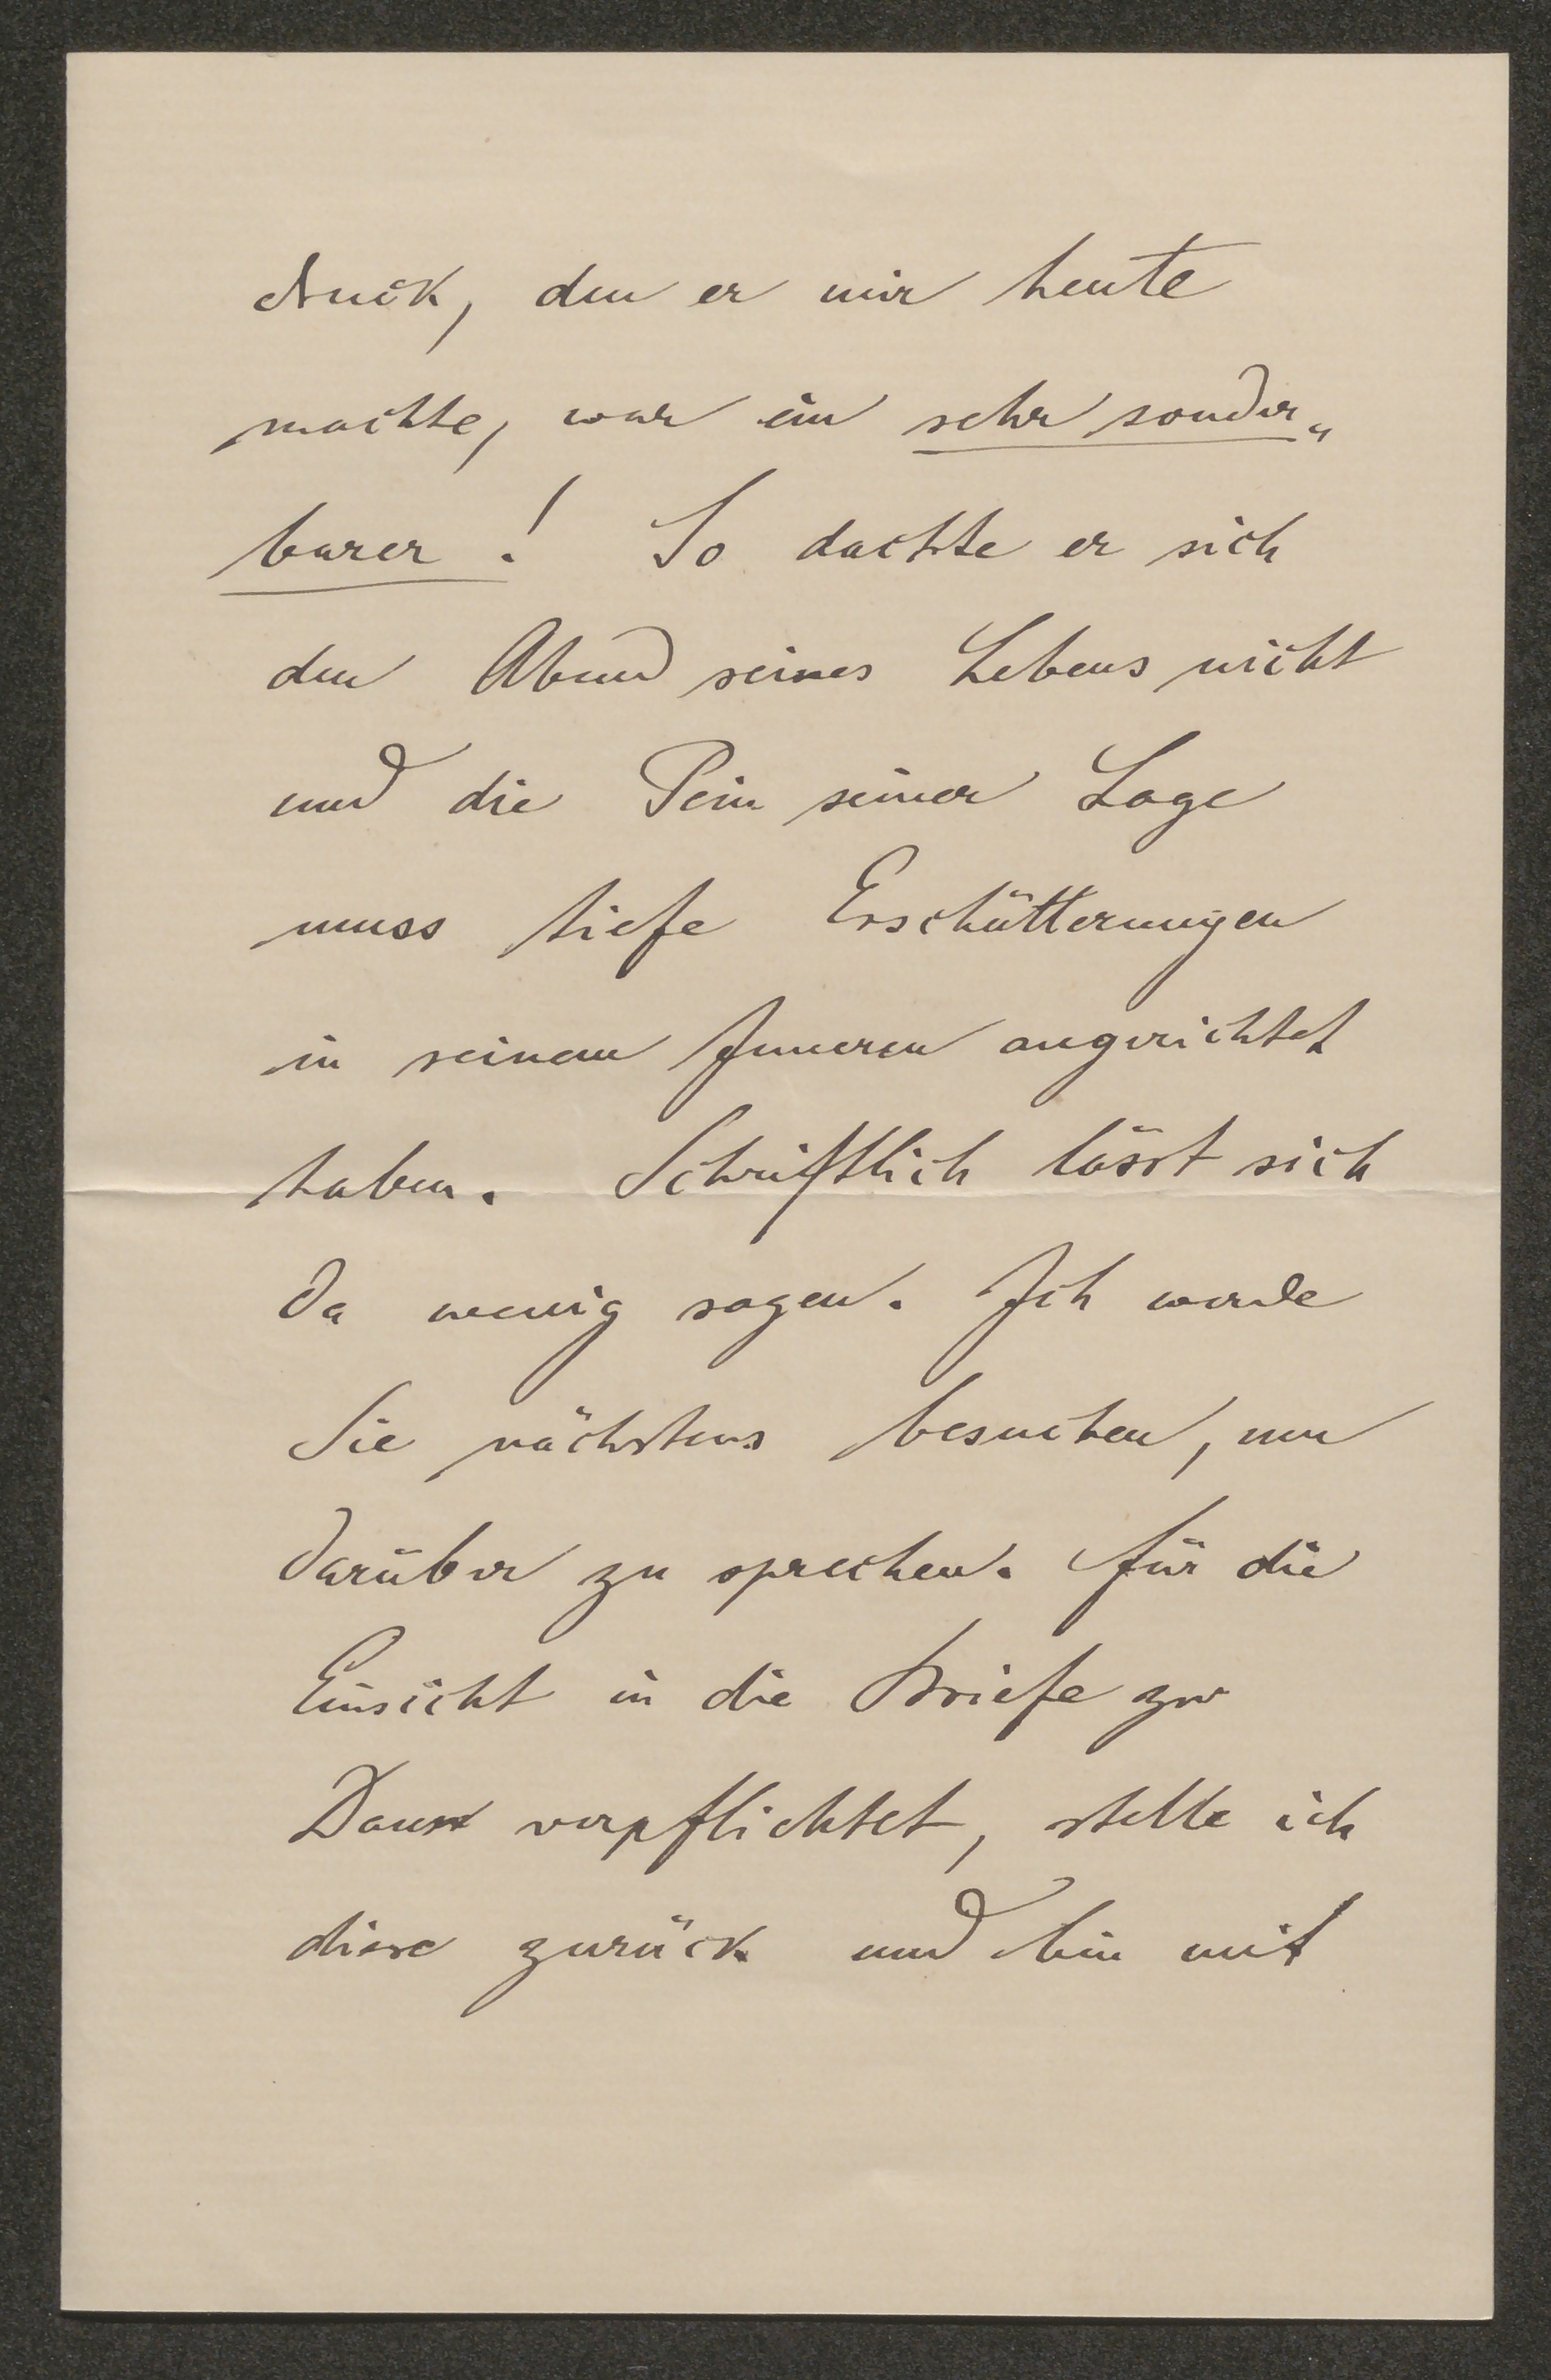 druck, den er mir heute
machte, war ein sehr sonder„
barer! So dachte er sich
den Abend seines Lebens nicht
und die Pein seiner Lage
muss tiefe Erschütterungen
in seinem Inneren angerichtet
haben. Schriftlich lässt sich
da wenig sagen. Ich werde
Sie nächstens besuchen, um
darüber zu sprechen. Für die
Einsicht in die Briefe zu
Dank verpflichtet, stelle ich
diese zurück und bin mit